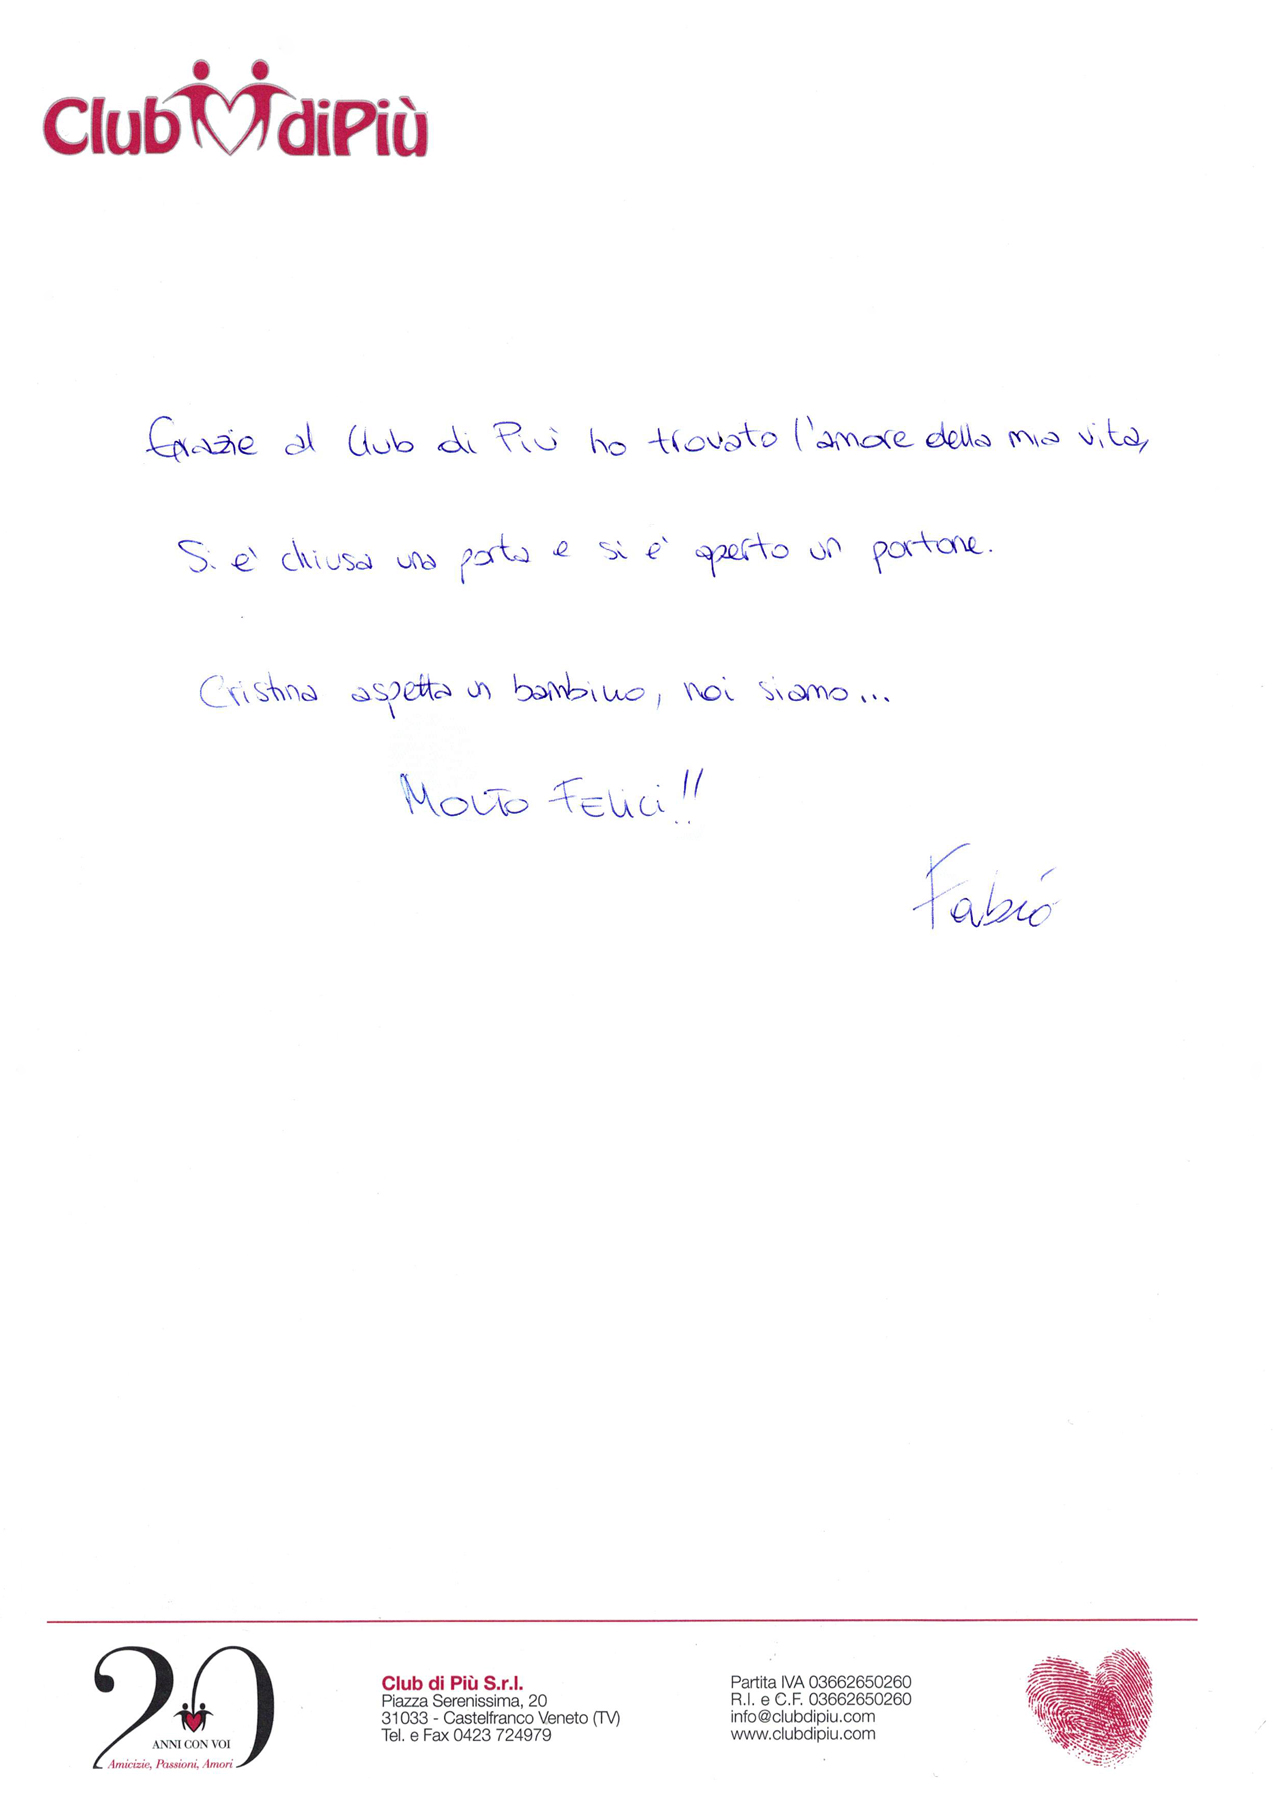 Club diPiù
Grazie al Club di Più ho trovato l'amore della mia vita,
Si e' chiusa una porta e si e' aperto un portone.
Cristina aspetta un bambino, noi siamo...
MOLTO FELICI!!
Fabio
20
ANNI CON VOI
Amicizie, Passioni, Amori
Club di Più S.r.l.
Piazza Serenissima, 20
31033 - Castelfranco Veneto (TV)
Tel. e Fax 0423 724979
Partita IVA 03662650260
R.I. e C.F. 03662650260
info@clubdipiu.com
www.clubdipiu.com